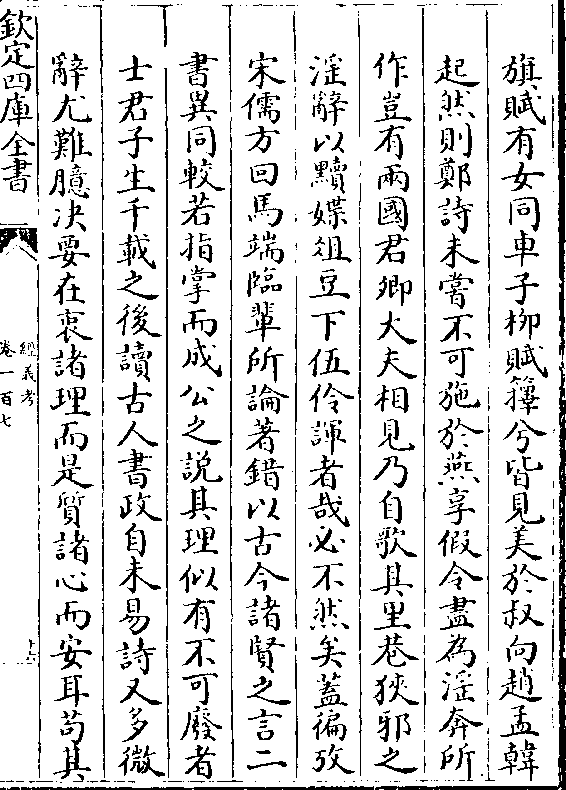 旗賦有女同車子柳賦籜兮皆見美於叔向趙孟韓
起然則鄭詩未嘗不可施於燕享假令盡為淫奔所
作豈有兩國君卿大夫相見乃自歌其里巷狹邪之
淫辭以黷媟俎豆下伍伶諢者哉必不然矣蓋徧攷
宋儒方回馬端臨輩所論著錯以古今諸賢之言二
書異同較若指掌而成公之説其理似有不可廢者
士君子生千載之後讀古人書政自未易詩又多微
辭尤難臆决要在衷諸理而是質諸心而安耳苟其
欽定四庫全書
經義考
卷一百七
十六